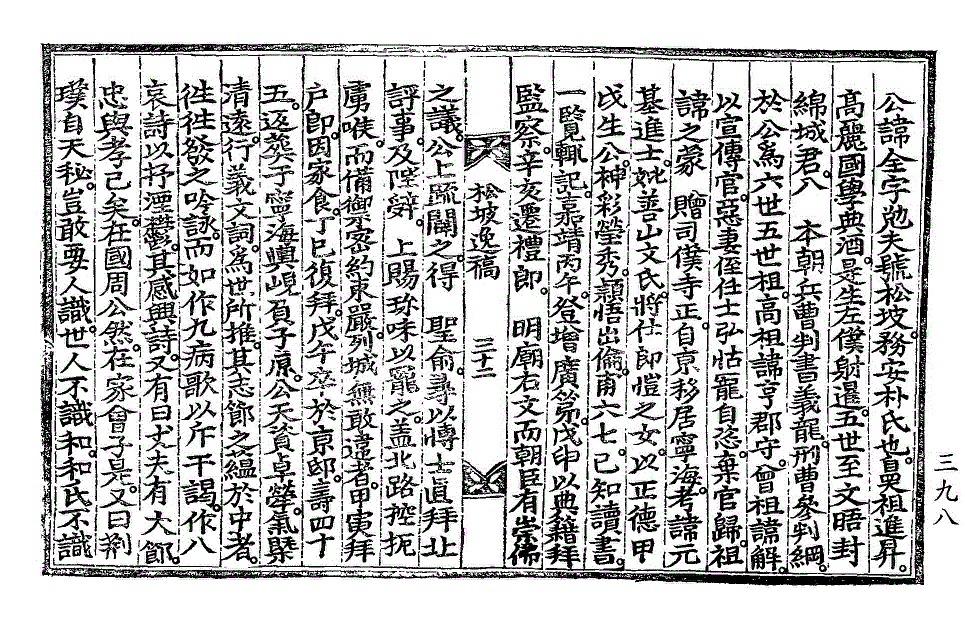 公諱全字勉夫號松坡務安朴氏也鼻祖進昇
高麗國學典酒是生左僕射暹五世至文晤封
綿城君入　本朝兵曹判書義龍刑曹參判綱
於公爲六世五世祖高祖諱亨郡守曾祖諱解
以宣傳官惡妻侄任士弘怙寵自恣棄官歸祖
諱之蒙　贈司僕寺正自京移居寧海考諱元
基進士妣善山文氏將仕郎愷之女以正德甲
戌生公神彩瑩秀穎悟出倫甫六七已知讀書
一覽輒記嘉靖丙午登增廣第戊申以典籍拜
監察辛亥遷禮郎　明廟右文而朝臣有崇佛
松坡逸稿　三十二
之議公上疏闢之得　聖俞尋以博士直拜北
評事及陛辭　上賜珎味以寵之盖北路控扼
虜喉而備禦密約束嚴列城無敢違者甲寅拜
戶郎因家食丁巳復拜戊午卒於京邸壽四十
五返葬于寧海輿峴負子原公天資卓犖氣槩
清遠行義文詞爲世所推其志節之蘊於中者
徃徃發之吟詠而如作九病歌以斥干謁作八
哀詩以抒湮鬱其感興詩又有曰丈夫有大節
忠與孝己矣在國周公然在家曾子是又曰荆
璞自天秘豈敢要人識世人不識和和氏不識
三九八